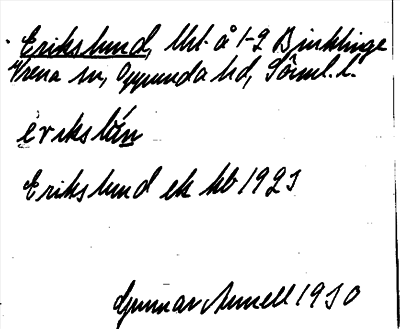 Erikslund, Uht. å 1-2 Binklinge
Vrena sn, Oppunda hd, Söml. l.
erikslán
Erikslund ek kb 1921
Gunnar Arnell 1930